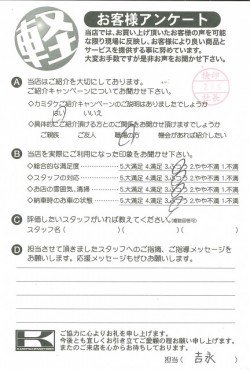 軽
お客様アンケート
当店では、お買い上げ頂いたお客様の声を可能
な限り現場に反映し、お客様により良い商品と
サービスを提供する事に努めています。
大変お手数ですが是非お声をお聞かせ下さい。
A 当店はご紹介を大切にしております。
ご紹介キャンペーンについてお聞かせ下さい。
◇カミタケご紹介キャンペーンのご説明はありましたでしょうか
はい いいえ
◇具体的にご紹介頂ける方とのご関係をお聞かせ頂けますでしょうか
ご親戚 ご友人 職場の方 機会があれば紹介したい
B 当店を実際にご利用になった印象をお聞かせ下さい。
◇総合的な満足度 5.大満足 4.満足 3. 2.やや不満 1.不満
◇スタッフの対応 5.大満足 4.満足 3. 2.やや不満 1.不満
◇お店の雰囲気、清掃 5.大満足 4.満足 3. 2.やや不満 1.不満
◇納車時のお車の状態 5.大満足 4.満足 3. 2.やや不満 1.不満
C 評価したいスタッフがいれば教えてください。(複数回答可)
スタッフ名( )( )( )
D 担当させて頂きましたスタッフへのご指摘、ご指導メッセージを
お願いします。応援メッセージもぜひお願いします。
K
ご協力に心よりお礼を申し上げます。
今後とも宜しくお引き立てご愛顧の程お願い申し上げます。
またのご来店を心からお待ちしております。
担当( 吉永 )